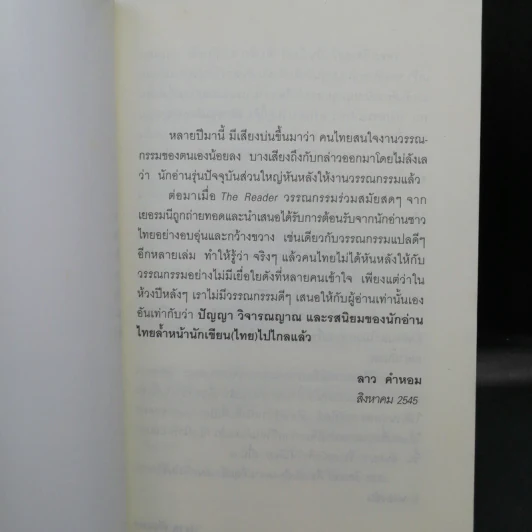 หลายปีมานี้ มีเสียงบ่นขึ้นมาว่า คนไทยสนใจงานวรรณ-
กรรมของตนเองน้อยลง บางเสียงถึงกับกล่าวออกมาโดยไม่ลังเล
ว่า นักอ่านรุ่นปัจจุบันส่วนใหญ่หันหลังให้งานวรรณกรรมแล้ว
ต่อมาเมื่อ The Reader วรรณกรรมร่วมสมัยสดๆ จาก
เยอรมนีถูกถ่ายทอดและนำเสนอได้รับการต้อนรับจากนักอ่านชาว
ไทยอย่างอบอุ่นและกว้างขวาง เช่นเดียวกับวรรณกรรมแปลดีๆ
อีกหลายเล่ม ทำให้รู้ว่า จริงๆ แล้วคนไทยไม่ได้หันหลังให้กับ
วรรณกรรมอย่างไม่มีเยื่อใยดังที่หลายคนเข้าใจ เพียงแต่ว่าใน
ห้วงปีหลังๆ เราไม่มีวรรณกรรมดีๆ เสนอให้กับผู้อ่านเท่านั้นเอง
อันเท่ากับว่า ปัญญา วิจารณญาณ และรสนิยมของนักอ่าน
ไทยล้ำหน้านักเขียน(ไทย)ไปไกลแล้ว
ลาว คำหอม
สิงหาคม 2545